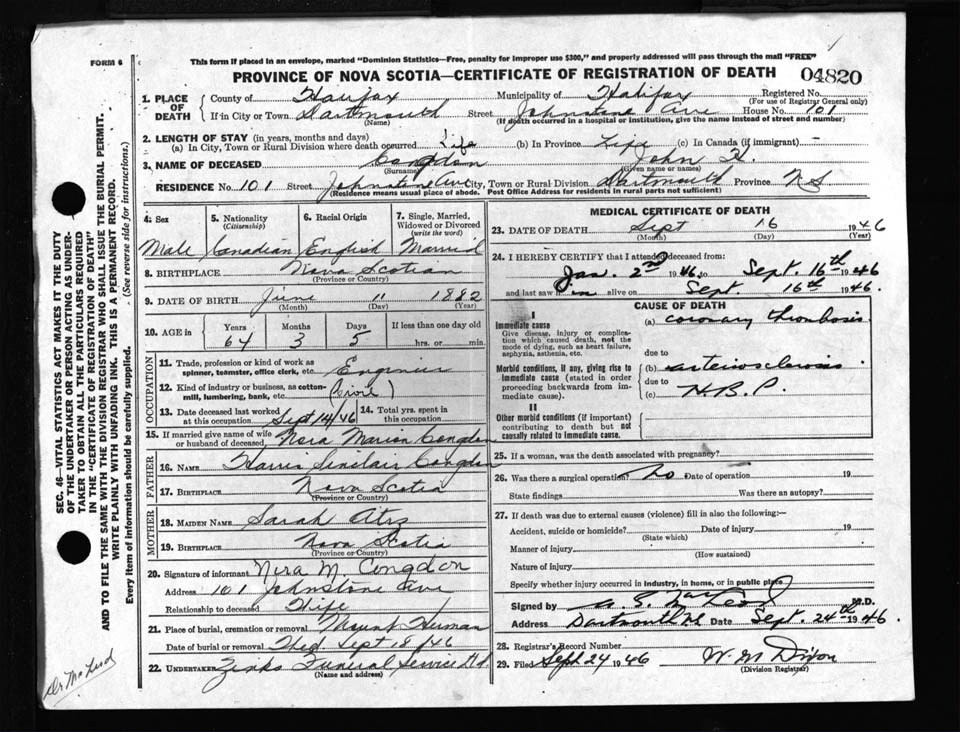 FORM 6
This form if placed in an envelope, marked "Dominion Statistics—Free, penalty for improper use $300," and properly addressed will pass through the mail "FREE"
PROVINCE OF NOVA SCOTIA—CERTIFICATE OF REGISTRATION OF DEATH 04820
1. PLACE OF DEATH County of Halifax Municipality of Halifax Registered No.
(For use of Registrar General only)
If in City or Town Dartmouth Street Johnstone Ave House No. 101
(Name) (If death occurred in a hospital or institution, give the name instead of street and number)
2. LENGTH OF STAY (in years, months and days)
(a) In City, Town or Rural Division where death occurred Life (b) In Province Life (c) In Canada (if immigrant)
3. NAME OF DECEASED Congdon John H.
(Surname) (Given name or names)
RESIDENCE No. 101 Street Johnstone Ave City, Town or Rural Division Dartmouth Province N S
(Residence means usual place of abode. Post Office Address for residents in rural parts not sufficient)
4. Sex 5. Nationality (Citizenship) 6. Racial Origin 7. Single, Married, Widowed or Divorced (write the word)
Male Canadian English Married
8. BIRTHPLACE Nova Scotian
(Province or Country)
9. DATE OF BIRTH June 11 1882
(Month) (Day) (Year)
10. AGE in Years Months Days If less than one day old
64 3 5 hrs. or min.
OCCUPATION
11. Trade, profession or kind of work as spinner, teamster, office clerk, etc. Engineer
12. Kind of industry or business, as cotton-mill, lumbering, bank, etc. (Civil)
13. Date deceased last worked at this occupation Sept 14/46 14. Total yrs. spent in this occupation
15. If married give name of wife or husband of deceased Nora Marion Congdon
FATHER
16. Name Harris Sinclair Congdon
17. Birthplace Nova Scotia
(Province or Country)
MOTHER
18. MAIDEN NAME Sarah
19. BIRTHPLACE Nova Scotia
(Province or Country)
20. Signature of informant Nora M. Congdon
Address 101 Johnstone Ave
Relationship to deceased Wife
21. Place of burial, cremation or removal Mount Herman
Date of burial or removal Wed. Sept 18/46
22. UNDERTAKER Zinks Funeral Service Ltd.
(Name and address)
MEDICAL CERTIFICATE OF DEATH
23. DATE OF DEATH Sept 16 1946
(Month) (Day) (Year)
24. I HEREBY CERTIFY that I attended deceased from:
Jan. 2nd 1946 to Sept. 16th 1946
and last saw h im alive on Sept. 16th 1946.
CAUSE OF DEATH
I
Immediate cause (a) coronary thrombosis
Give disease, injury or complication which caused death, not the mode of dying, such as heart failure, asphyxia, asthenia, etc.
due to
Morbid conditions, if any, giving rise to immediate cause (stated in order proceeding backwards from immediate cause).
(b) arteriosclerosis
due to
(c) H.B.P.
II
Other morbid conditions (if important) contributing to death but not causally related to immediate cause.
25. If a woman, was the death associated with pregnancy?
26. Was there a surgical operation? No Date of operation 19
State findings Was there an autopsy?
27. If death was due to external causes (violence) fill in also the following:—
Accident, suicide or homicide? Date of injury 19
(State which)
Manner of injury
(How sustained)
Nature of injury
Specify whether injury occurred in industry, in home, or in public place
Signed by M.D.
Address Dartmouth N.S. Date Sept. 24th 1946.
28. Registrar's Record Number
29. Filed Sept 24 1946 W. M Dixon
(Division Registrar)
SEC. 46—VITAL STATISTICS ACT MAKES IT THE DUTY
OF THE UNDERTAKER OR PERSON ACTING AS UNDER-
TAKER TO OBTAIN ALL THE PARTICULARS REQUIRED
IN THE "CERTIFICATE OF REGISTRATION OF DEATH"
AND TO FILE THE SAME WITH THE DIVISION REGISTRAR WHO SHALL ISSUE THE BURIAL PERMIT.
WRITE PLAINLY WITH UNFADING INK. THIS IS A PERMANENT RECORD.
Every item of information should be carefully supplied. (See reverse side for instructions.)